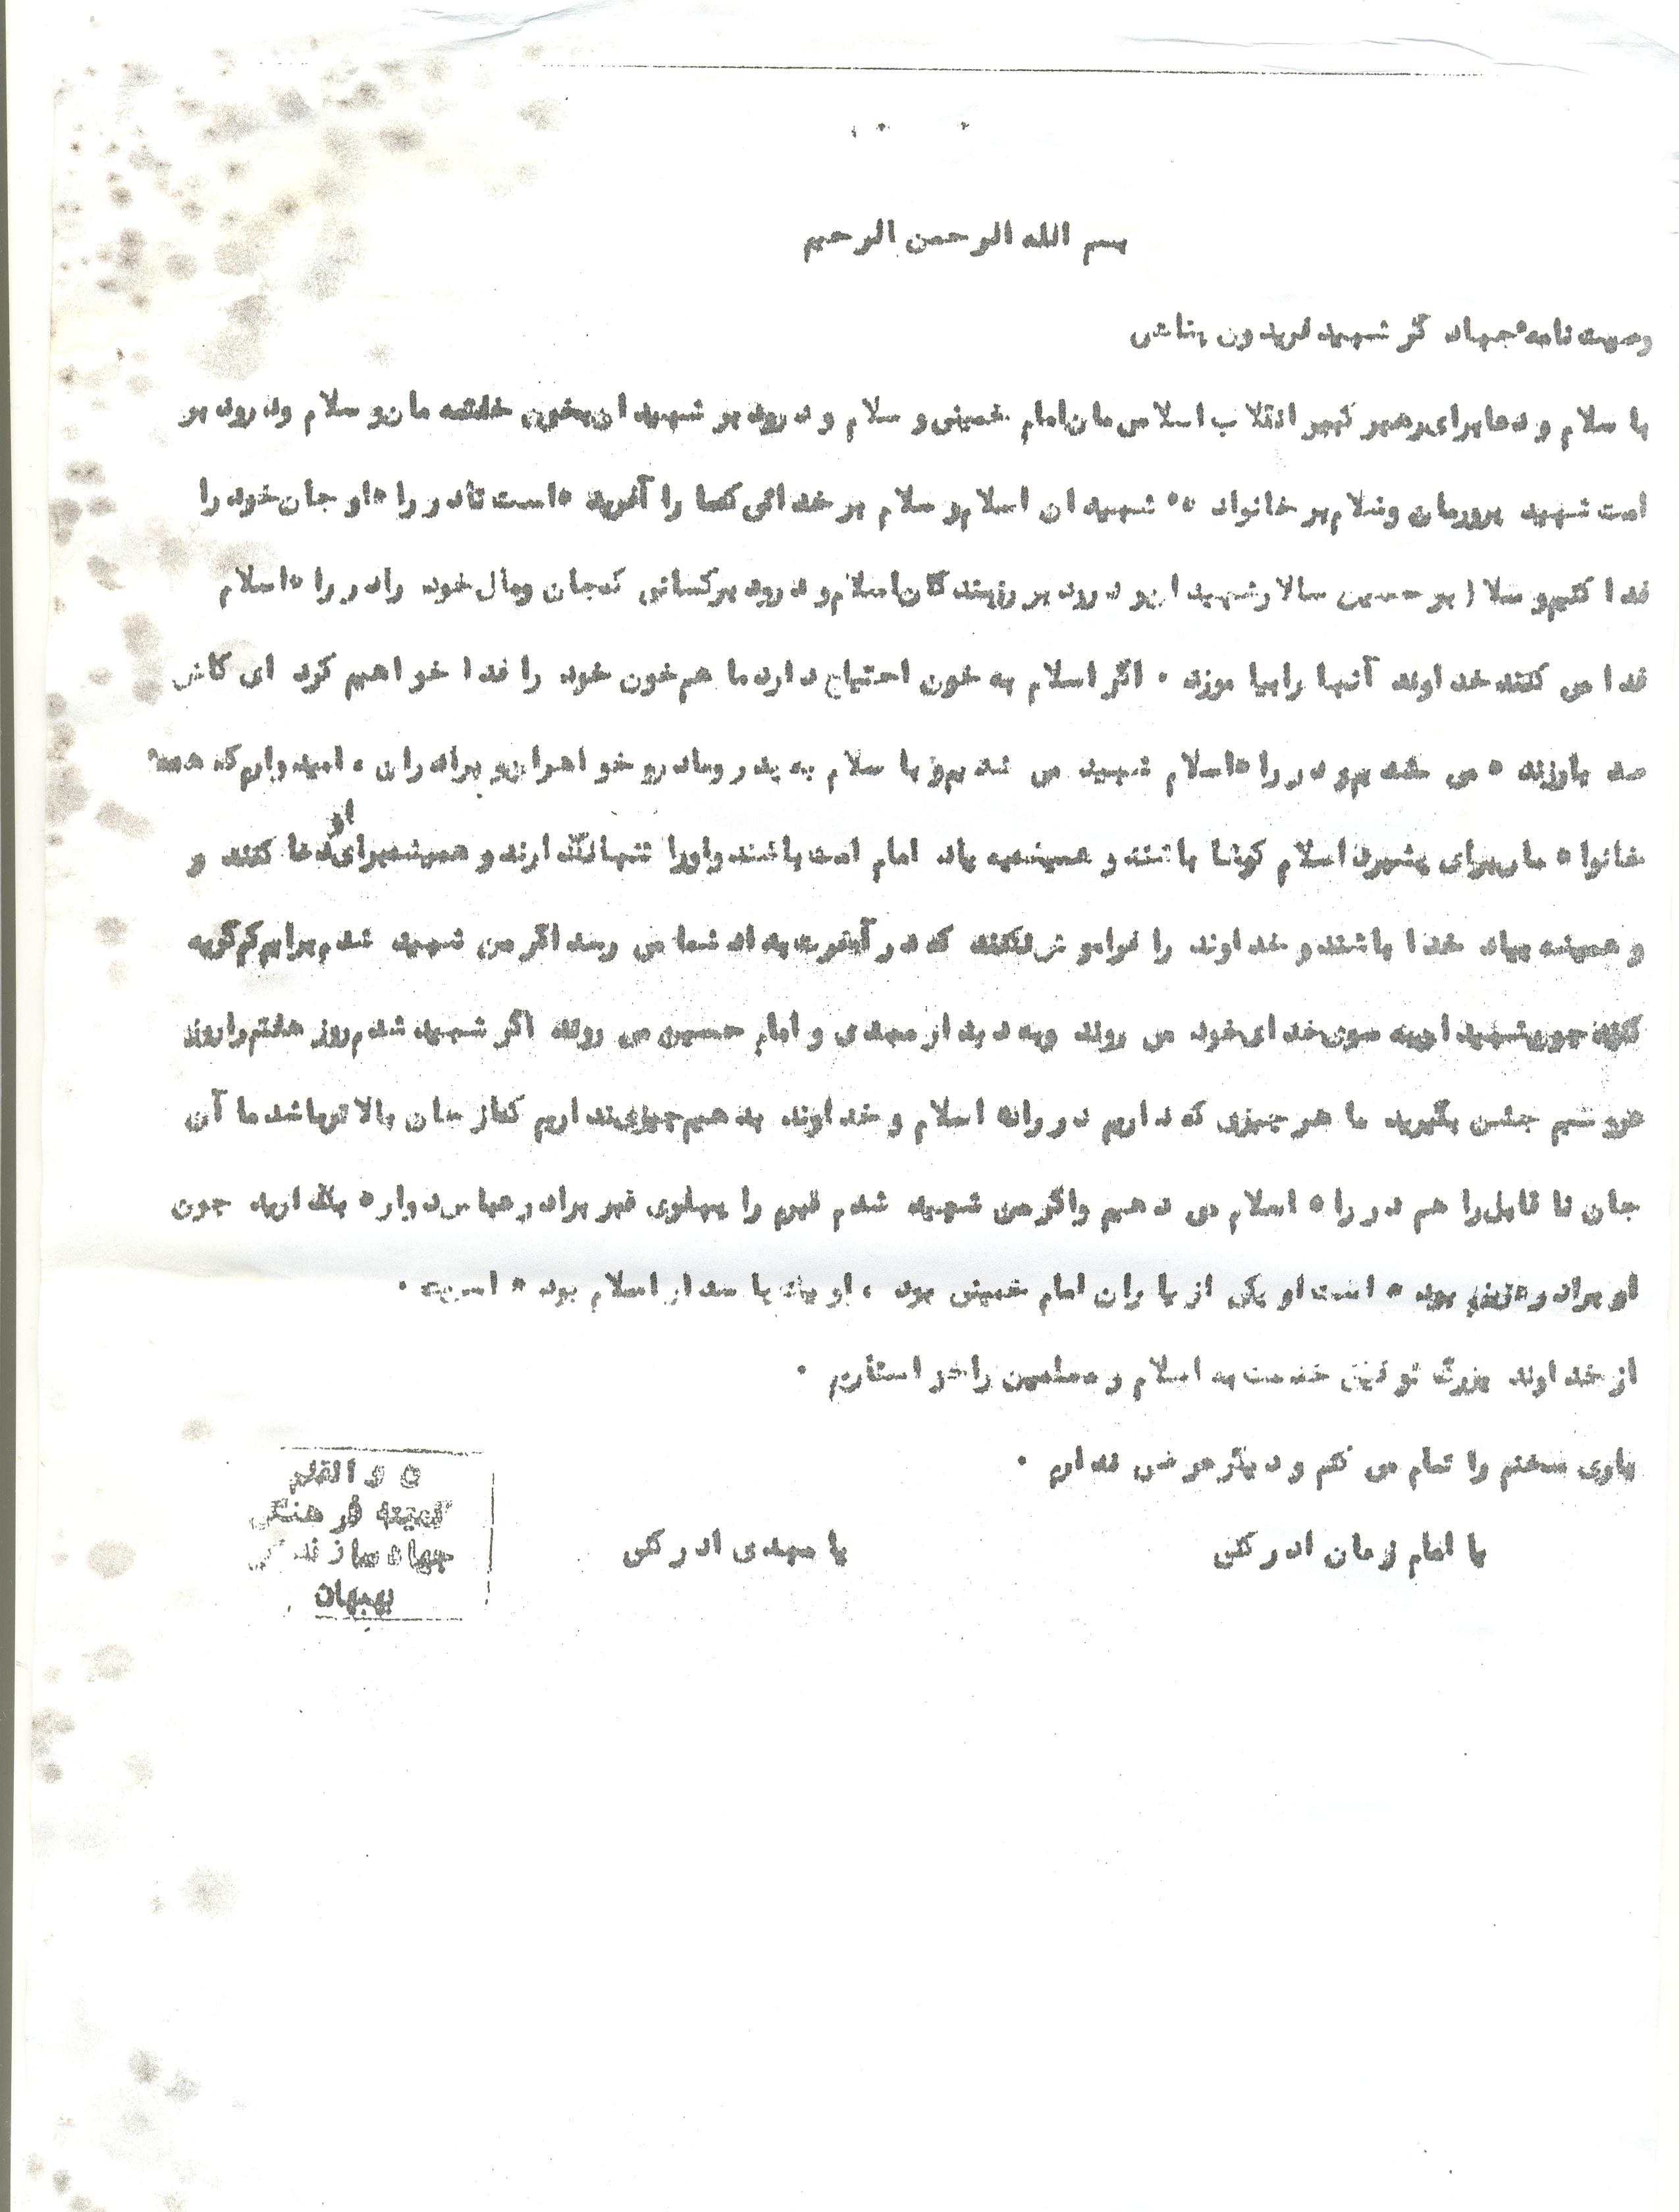 بسم الله الرحمن الرحیم
وصیت نامه جهاد گر شهید فریدون
با سلام و دعا برای رهبر کبیر انقلاب اسلامی مان امام خمینی و سلام و درود بر شهیدان بخون خفته مان و سلام و درود بر
امت شهید پرورمان و سلام بر خانواده شهیدان اسلام و سلام بر خدائی که ما را آفریده است تا در راه او جان خود را
فدا کنیم و سلا بر حسین سالار شهیدان و درود بر رزمندگان اسلام و درود بر کسانی که جان و مال خود را در راه اسلام
فدا می کنند خداوند آنها را بیا موزد . اگر اسلام به خون احتیاج دارد ما هم خون خود را فدا خواهیم کرد ای کاش
صد بار زنده می شدیم و در راه اسلام شهید می شدیم و با سلام به پدر و مادر و خواهران و برادران ، امیدوارم که همه
خانواده مان برای پیشبرد اسلام کوشا باشند و همیشه به یاد امام امت باشند و او را تنها نگذارند و همیشه برای او دعا کنند و
و همیشه بیاد خدا باشند و خداوند را فراموش نکنند که در آخرت به داد شما می رسد اگر من شهید شدم برایم کم گریه
کنید چون شهیدان به سوی خدای خود می روند و به دیدار مهدی و امام حسین می روند اگر شهید شدم روز هفتم را روز
عروسیم جشن بگیرید ما هر چیزی که داریم در راه اسلام و خداوند بدهیم چیزی نداریم که از جان بالاتر باشد ما آن
جان نا قابل را هم در راه اسلام می دهیم و اگر من شهید شدم قبرم را پهلوی قبر برادر عباس دواره بگذارید چون
او برادر بوده است او یکی از یاران امام خمینی بود ، او یک پاسدار اسلام بوده است .
از خداوند بزرگ توفیق خدمت به اسلام و مسلمین را خواستارم .
باری سخنم را تمام می کنم و دیگر عرضی ندارم .
یا امام زمان ادرکنی یا مهدی ادرکنی
ن و القلم
کمیته فرهنگی
جهاد سازندگی
بهبهان